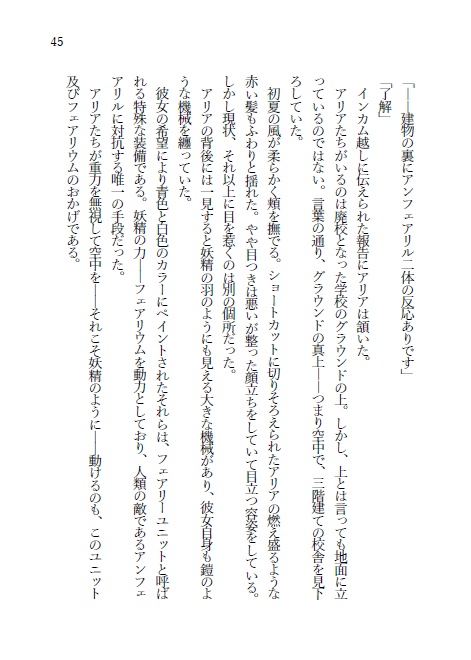 45
「――建物の裏にアンフェアリル二体の反応ありです」
「了解」
　インカム越しに伝えられた報告にアリアは頷いた。
　アリアたちがいるのは廃校となった学校のグラウンドの上。しかし、上とは言っても地面に立
っているのではない。言葉の通り、グラウンドの真上――つまり空中で、三階建ての校舎を見下
ろしていた。
　初夏の風が柔らかく頬を撫でる。ショートカットに切りそろえられたアリアの燃え盛るような
赤い髪もふわりと揺れた。やや目つきは悪いが整った顔立ちをしていて目立つ容姿をしている。
しかし現状、それ以上に目を惹くのは別の個所だった。
　アリアの背後には一見すると妖精の羽のようにも見える大きな機械があり、彼女自身も鎧のよ
うな機械を纏っていた。
　彼女の希望により青色と白色のカラーにペイントされたそれらは、フェアリーユニットと呼ば
れる特殊な装備である。妖精の力――フェアリウムを動力としており、人類の敵であるアンフェ
アリルに対抗する唯一の手段だった。
　アリアたちが重力を無視して空中を――それこそ妖精のように――動けるのも、このユニット
及びフェアリウムのおかげである。